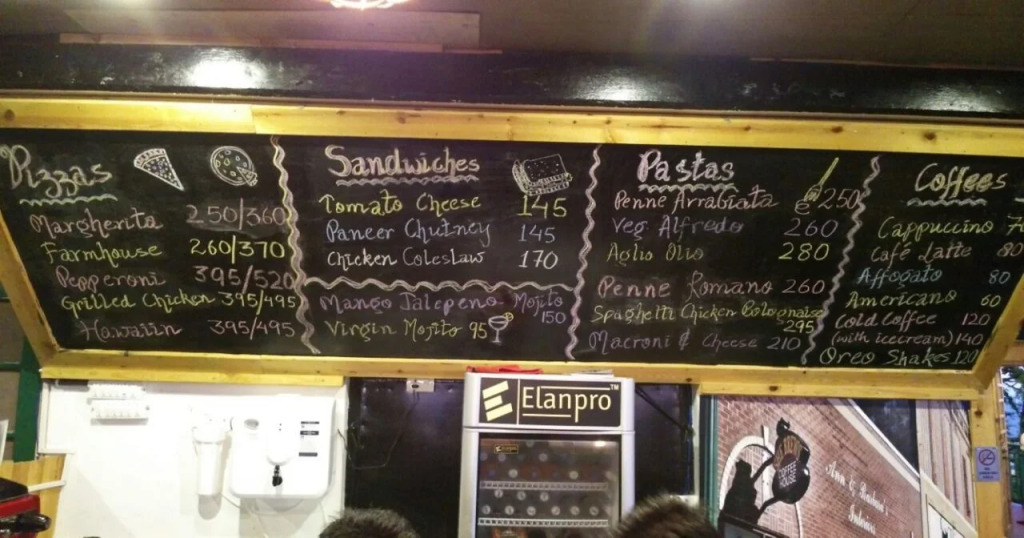 Pizzas
Margherita 250/360
Farmhouse 260/370
Pepperoni 395/520
Grilled Chicken 395/495
Hawaiin 395/495
Sandwiches
Tomato Cheese 145
Paneer Chutney 145
Chicken Coleslaw 170
Mango Jalepeno Mojito
150
Virgin Mojito 95
Pastas
Penne Arrabiata 250
Veg. Alfredo 260
Aglio Olio 280
Penne Romano 260
Spaghetti Chicken Bolognaise
295
Macroni & Cheese 210
Coffees
Cappuccino
Café Latte 80
Affogato 80
Americano 60
Cold Coffee 120
(with icecream) 140
Oreo Shakes 120
Elanpro™
COFFEE
HOUSE